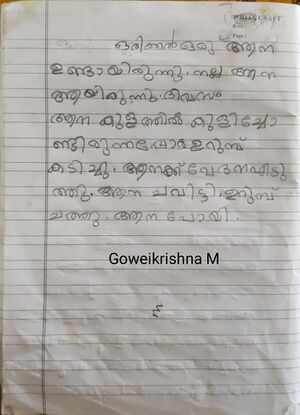 WHITE CRAFT
Date:
Page:
ഒരിക്കൽ ഒരു ആന
ഉണ്ടായിരുന്നു. നല്ല ആന
ആയിരുന്നു. ദിവസം
ആന കുളത്തിൽ കുളിച്ചോ
ണ്ടിരുന്നപ്പോൾ ഉറുമ്പ്
കടിച്ചു. ആനക്ക് വേദനപ്പെടു
ത്തു. ആന ചവിട്ടി. ഉറുമ്പ്
ചത്തു. ആന പോയി.
Goweikrishna M